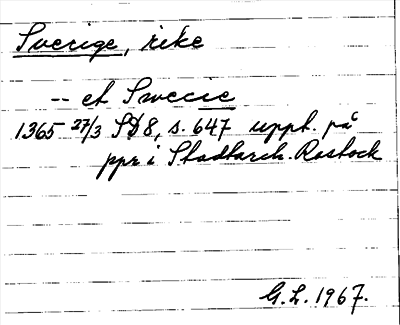 Sverige, rike
-- et Swecie
1365 27/3 SD 8, s. 647 uppt. på
ppr i Stadtarch. Rostock
G.L. 1967.